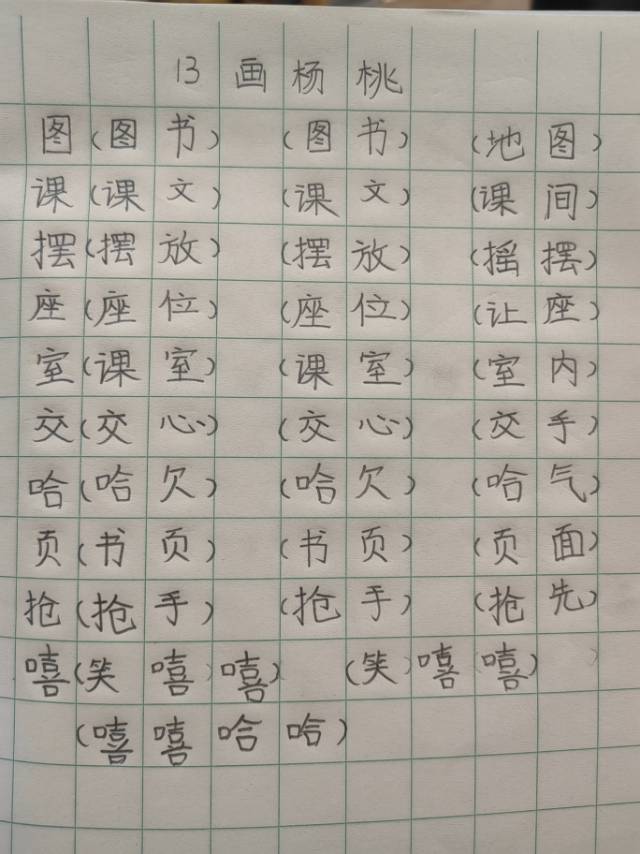 13 画杨桃
图(图书) (图书) (地图)
课(课文) (课文) (课间)
摆(摆放) (摆放) (摇摆)
座(座位) (座位) (让座)
室(课室) (课室) (室内)
交(交心) (交心) (交手)
哈(哈欠) (哈欠) (哈气)
页(书页) (书页) (页面)
抢(抢手) (抢手) (抢先)
嘻(笑嘻嘻) (笑嘻嘻)
(嘻嘻哈哈)